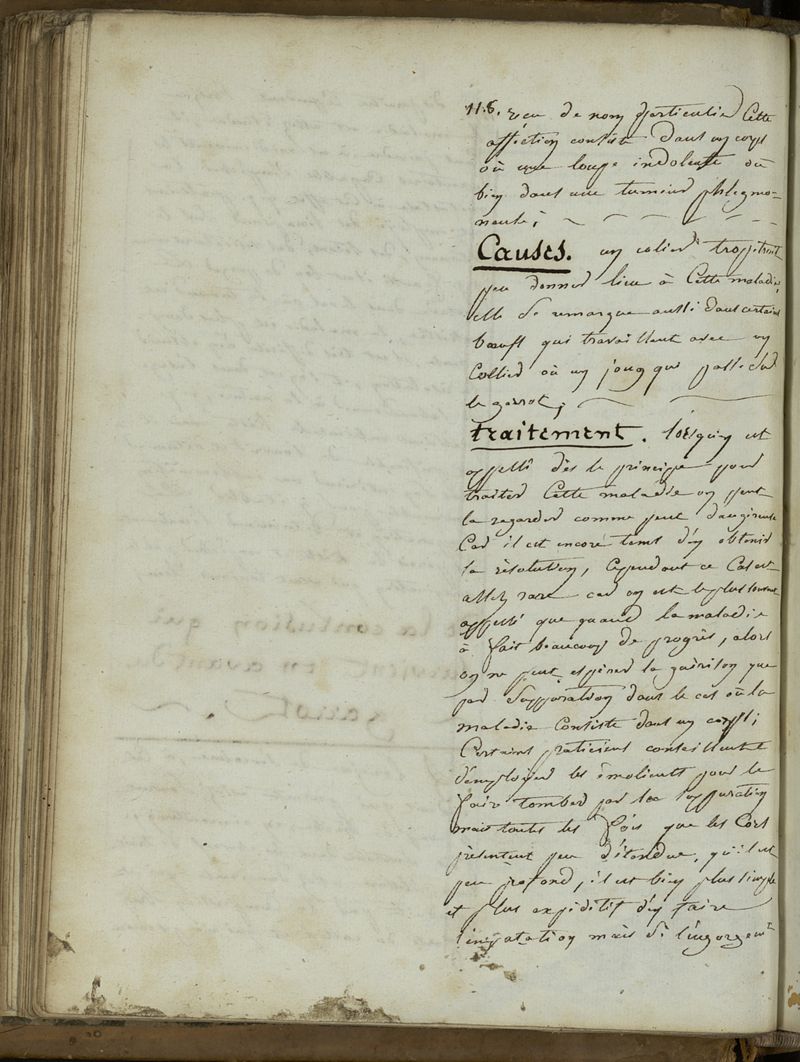 118. reçu de nom particulier Cette
affection consiste dans un corps
où une loupe indolente où
bien dans une tumeur phlegmo=
neuse;
Causes. un colier trop étroit
peu donner lieu à Cette maladie,
elle se remarque aussi dans certains
bœufs qui travaillent avec un
Collier où un joug qui passe sur
le garrot;
traitement. lorsqu'on est
appellé dès le principe pour
traiter Cette maladie on peut
la regarder comme peut dangéreuse
Car il est encore tems d'en obtenir
la résolution, Cependant ce Cas est
assez rare car on est le plus souvent
appellé que quand la maladie
à fait beaucoup de progrès, alors
on ne peut espérer la guérison que
par Suppuration dans le cas où la
maladie Consiste dans un corps;
Certains praticiens conseillent
d'employer les émolients pour le
faire tomber par la suppuration
mais toutes les fois que les Cors
présentent peu d'étendue, qu'il est
peu profond, il est bien plus simple
et plus expéditif d'en faire
l'emputation mais si l'engorgemt